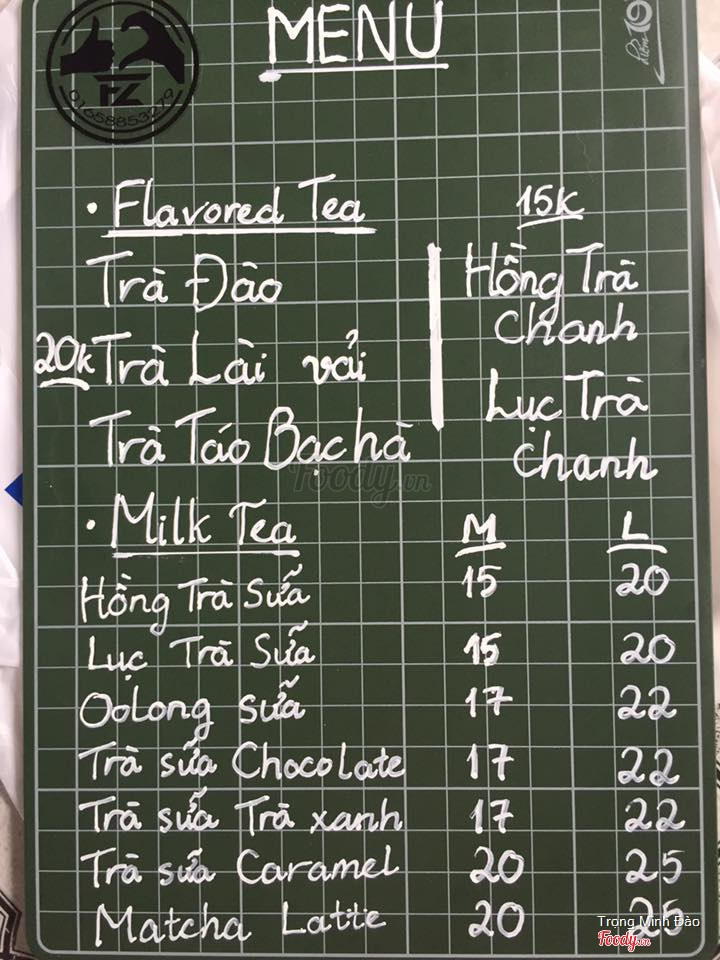 MENU
FZ
01658853279
• Flavored Tea 15k
Trà Đào
20k Trà Lài vải
Trà Táo Bạc hà
Hồng Trà
Chanh
Lục Trà
Chanh
• Milk Tea M L
Hồng Trà Sữa 15 20
Lục Trà Sữa 15 20
Oolong sữa 17 22
Trà sữa Chocolate 17 22
Trà sữa Trà xanh 17 22
Trà sữa Caramel 20 25
Matcha Latte 20 25
Foody.vn
Trong Minh Đào
Foody.vn